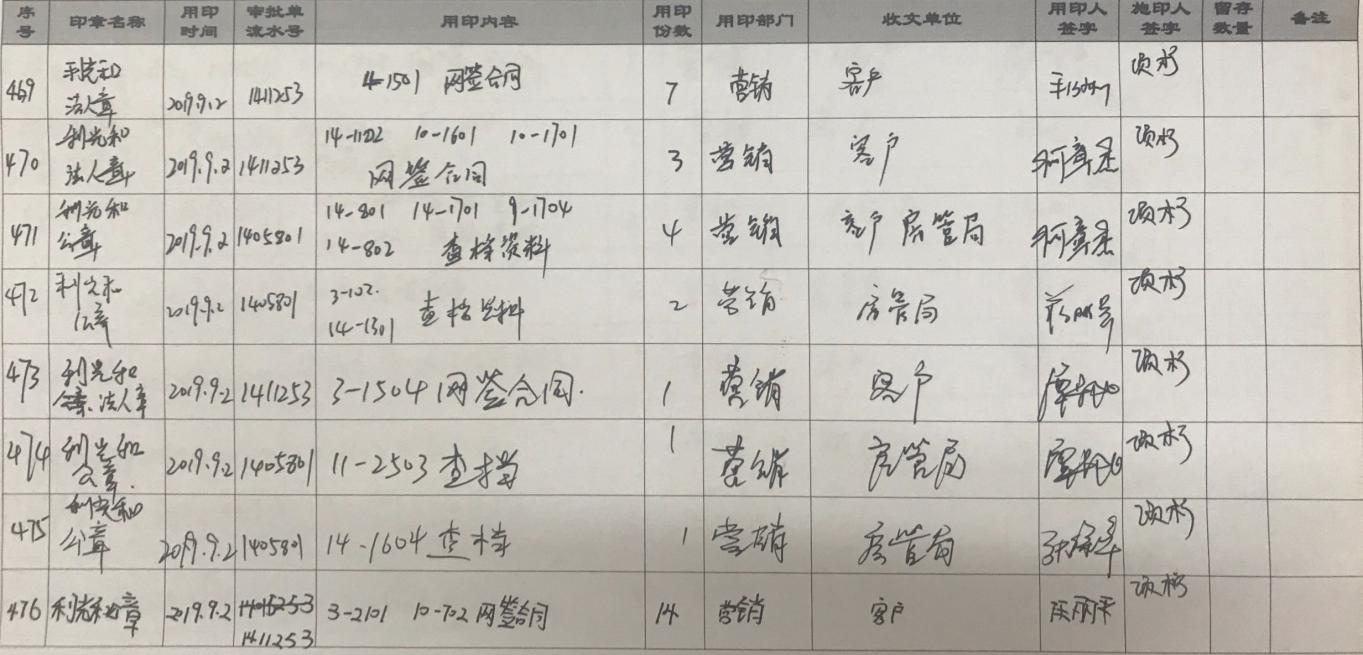 序号 印章名称 用印时间 审批单流水号 用印内容 用印份数 用印部门 收文单位 用印人签字 施印人签字 留存数量 备注
469 利光和法人章 2019.9.2 1411253 14-1501 网签合同 7 营销 客户 项杉
470 利光和法人章 2019.9.2 1411253 14-1102 10-1601 10-1701 网签合同 3 营销 客户 项杉
471 利光和公章 2019.9.2 1405801 14-801 14-1701 9-1704 14-802 查档资料 4 营销 客户 房管局 项杉
472 利光和公章 2019.9.2 1405801 3-102. 14-1301 查档资料 2 营销 房管局 项杉
473 利光和公章、法人章 2019.9.2 1411253 3-1504 网签合同. 1 营销 客户 项杉
474 利光和公章. 2019.9.2 1405801 11-2503 查档 1 营销 房管局 项杉
475 利光和公章 2019.9.2 1405801 14-1604 查档 1 营销 房管局 项杉
476 利光和公章 2019.9.2 1411253 3-2101 10-702 网签合同 14 营销 客户 项杉